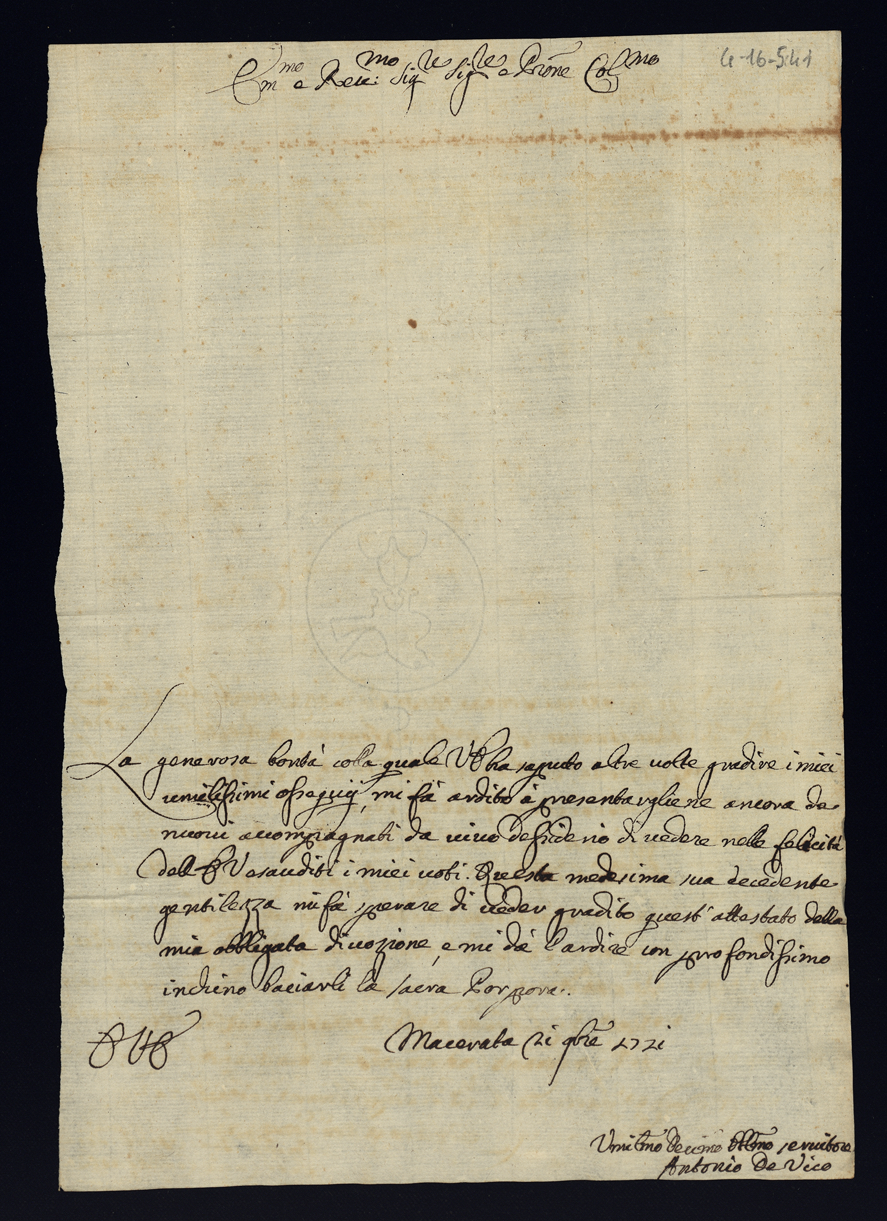 4-16-541
Em.mo e Reu:mo Sig.re Sig.re e Prõne Col.mo
La generosa bontá colla quale VE ha saputo altre uolte gradire i miei
umilissimi ossequij, mi fá ardito á presentargliene ancora de
nuoui accompagnati da uiuo desiderio di uedere nelle felicitá
dell EV esauditi i miei uoti. Questa medesima sua eccedente
gentilezza mi fá sperare di ueder gradito quest' attestato della
mia obbligata diuozione, e mi dá l'ardire con profondissimo
inchino baciarle la sacra Porpora.
Macerata 21 9bre 1721
Umilmo Deumo Obblmo seruitore
Antonio De Vico